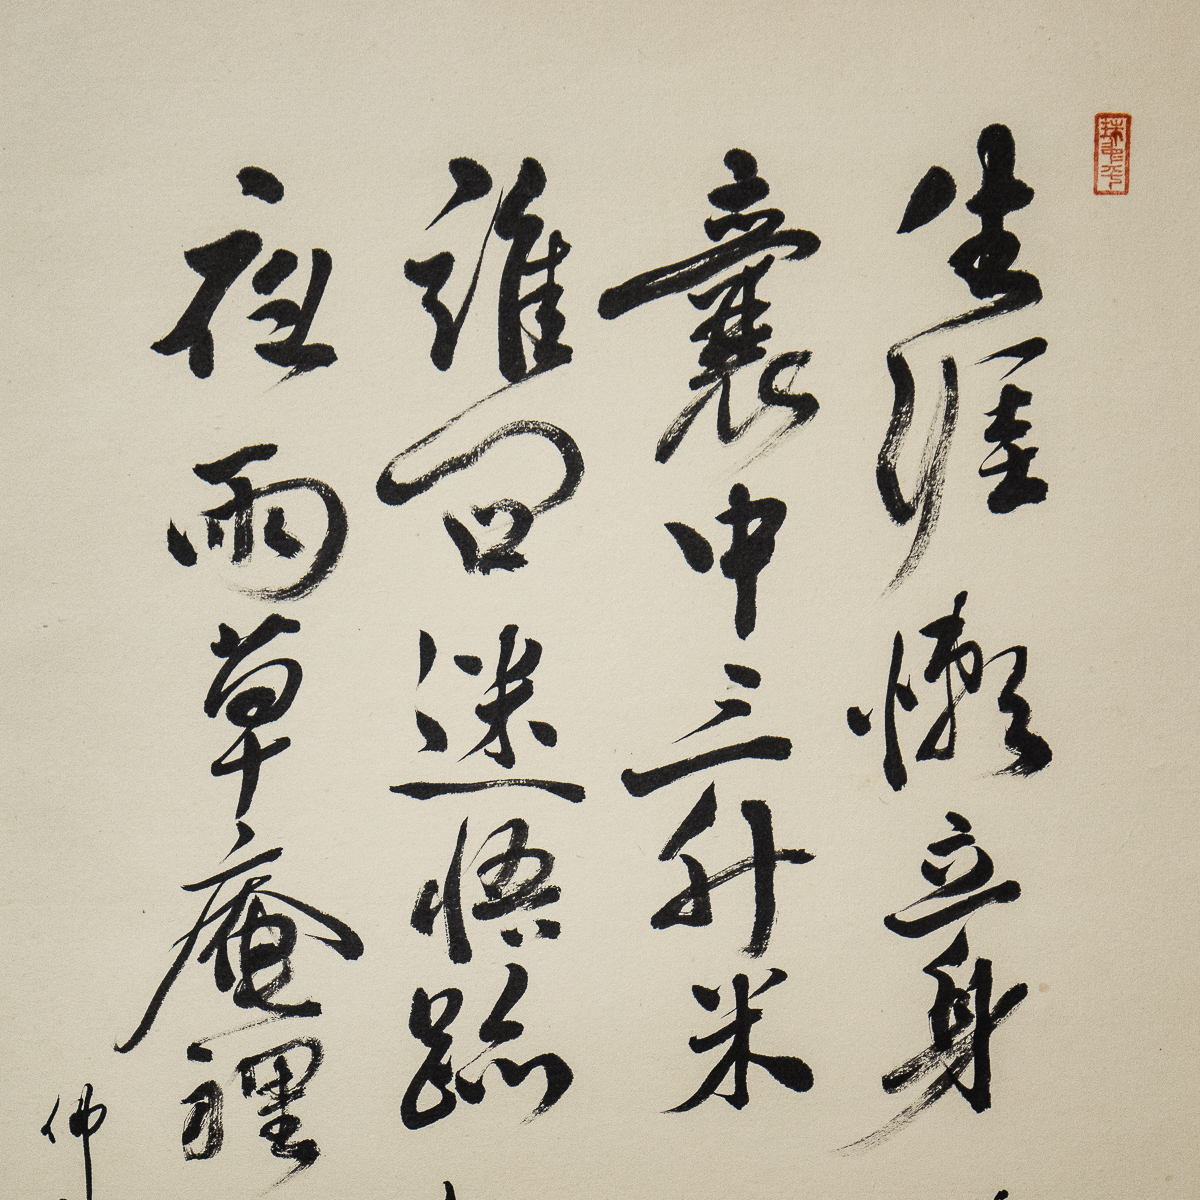 生涯懶立身
囊中三升米
誰問迷悟跡
夜雨草庵裡
佛